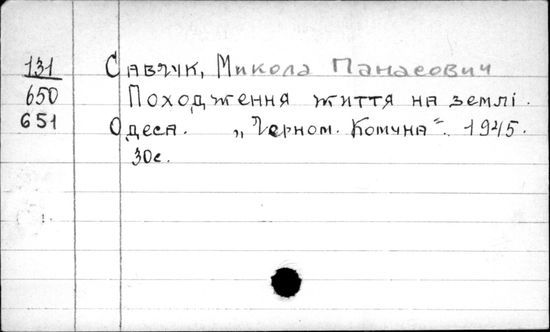 131 Савчук, Микола Панасович
650 Походження життя на землі.
651 Одеса. „Чорном. Комуна". 1945.
30с.